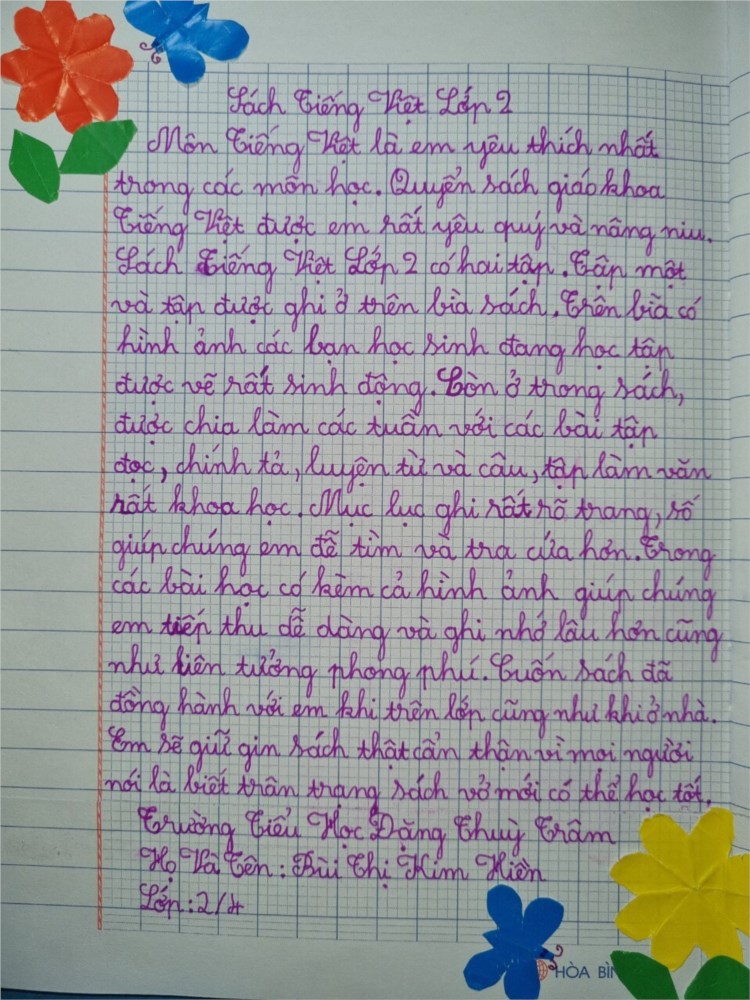 Sách Tiếng Việt Lớp 2
Môn Tiếng Việt là em yêu thích nhất
trong các môn học. Quyển sách giáo khoa
Tiếng Việt được em rất yêu quý và nâng niu.
Sách Tiếng Việt Lớp 2 có hai tập. Tập một
và tập được ghi ở trên bìa sách. Trên bìa có
hình ảnh các bạn học sinh đang học tập
được vẽ rất sinh động. Còn ở trong sách,
được chia làm các tuần với các bài tập
đọc, chính tả, luyện từ và câu, tập làm văn
rất khoa học. Mục lục ghi rất rõ trang, số
giúp chúng em dễ tìm và tra cứa hơn. Trong
các bài học có kèm cả hình ảnh giúp chúng
em tiếp thu dễ dàng và ghi nhớ lâu hơn cũng
như liên tưởng phong phú. Cuốn sách đã
đồng hành với em khi trên lớp cũng như khi ở nhà.
Em sẽ giữ gìn sách thật cẩn thận vì mọi người
nói là biết trân trạng sách vở mới có thể học tốt.
Trường Tiểu Học Đặng Thuỳ Trâm
Họ Và Tên : Bùi Thị Kim Hiền
Lớp : 2/4
HÒA BÌ